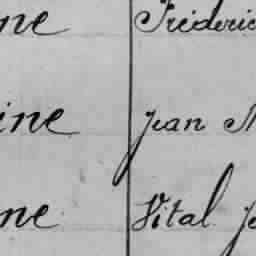 ne Frédéric
ine Jean N
ne Vital Jo